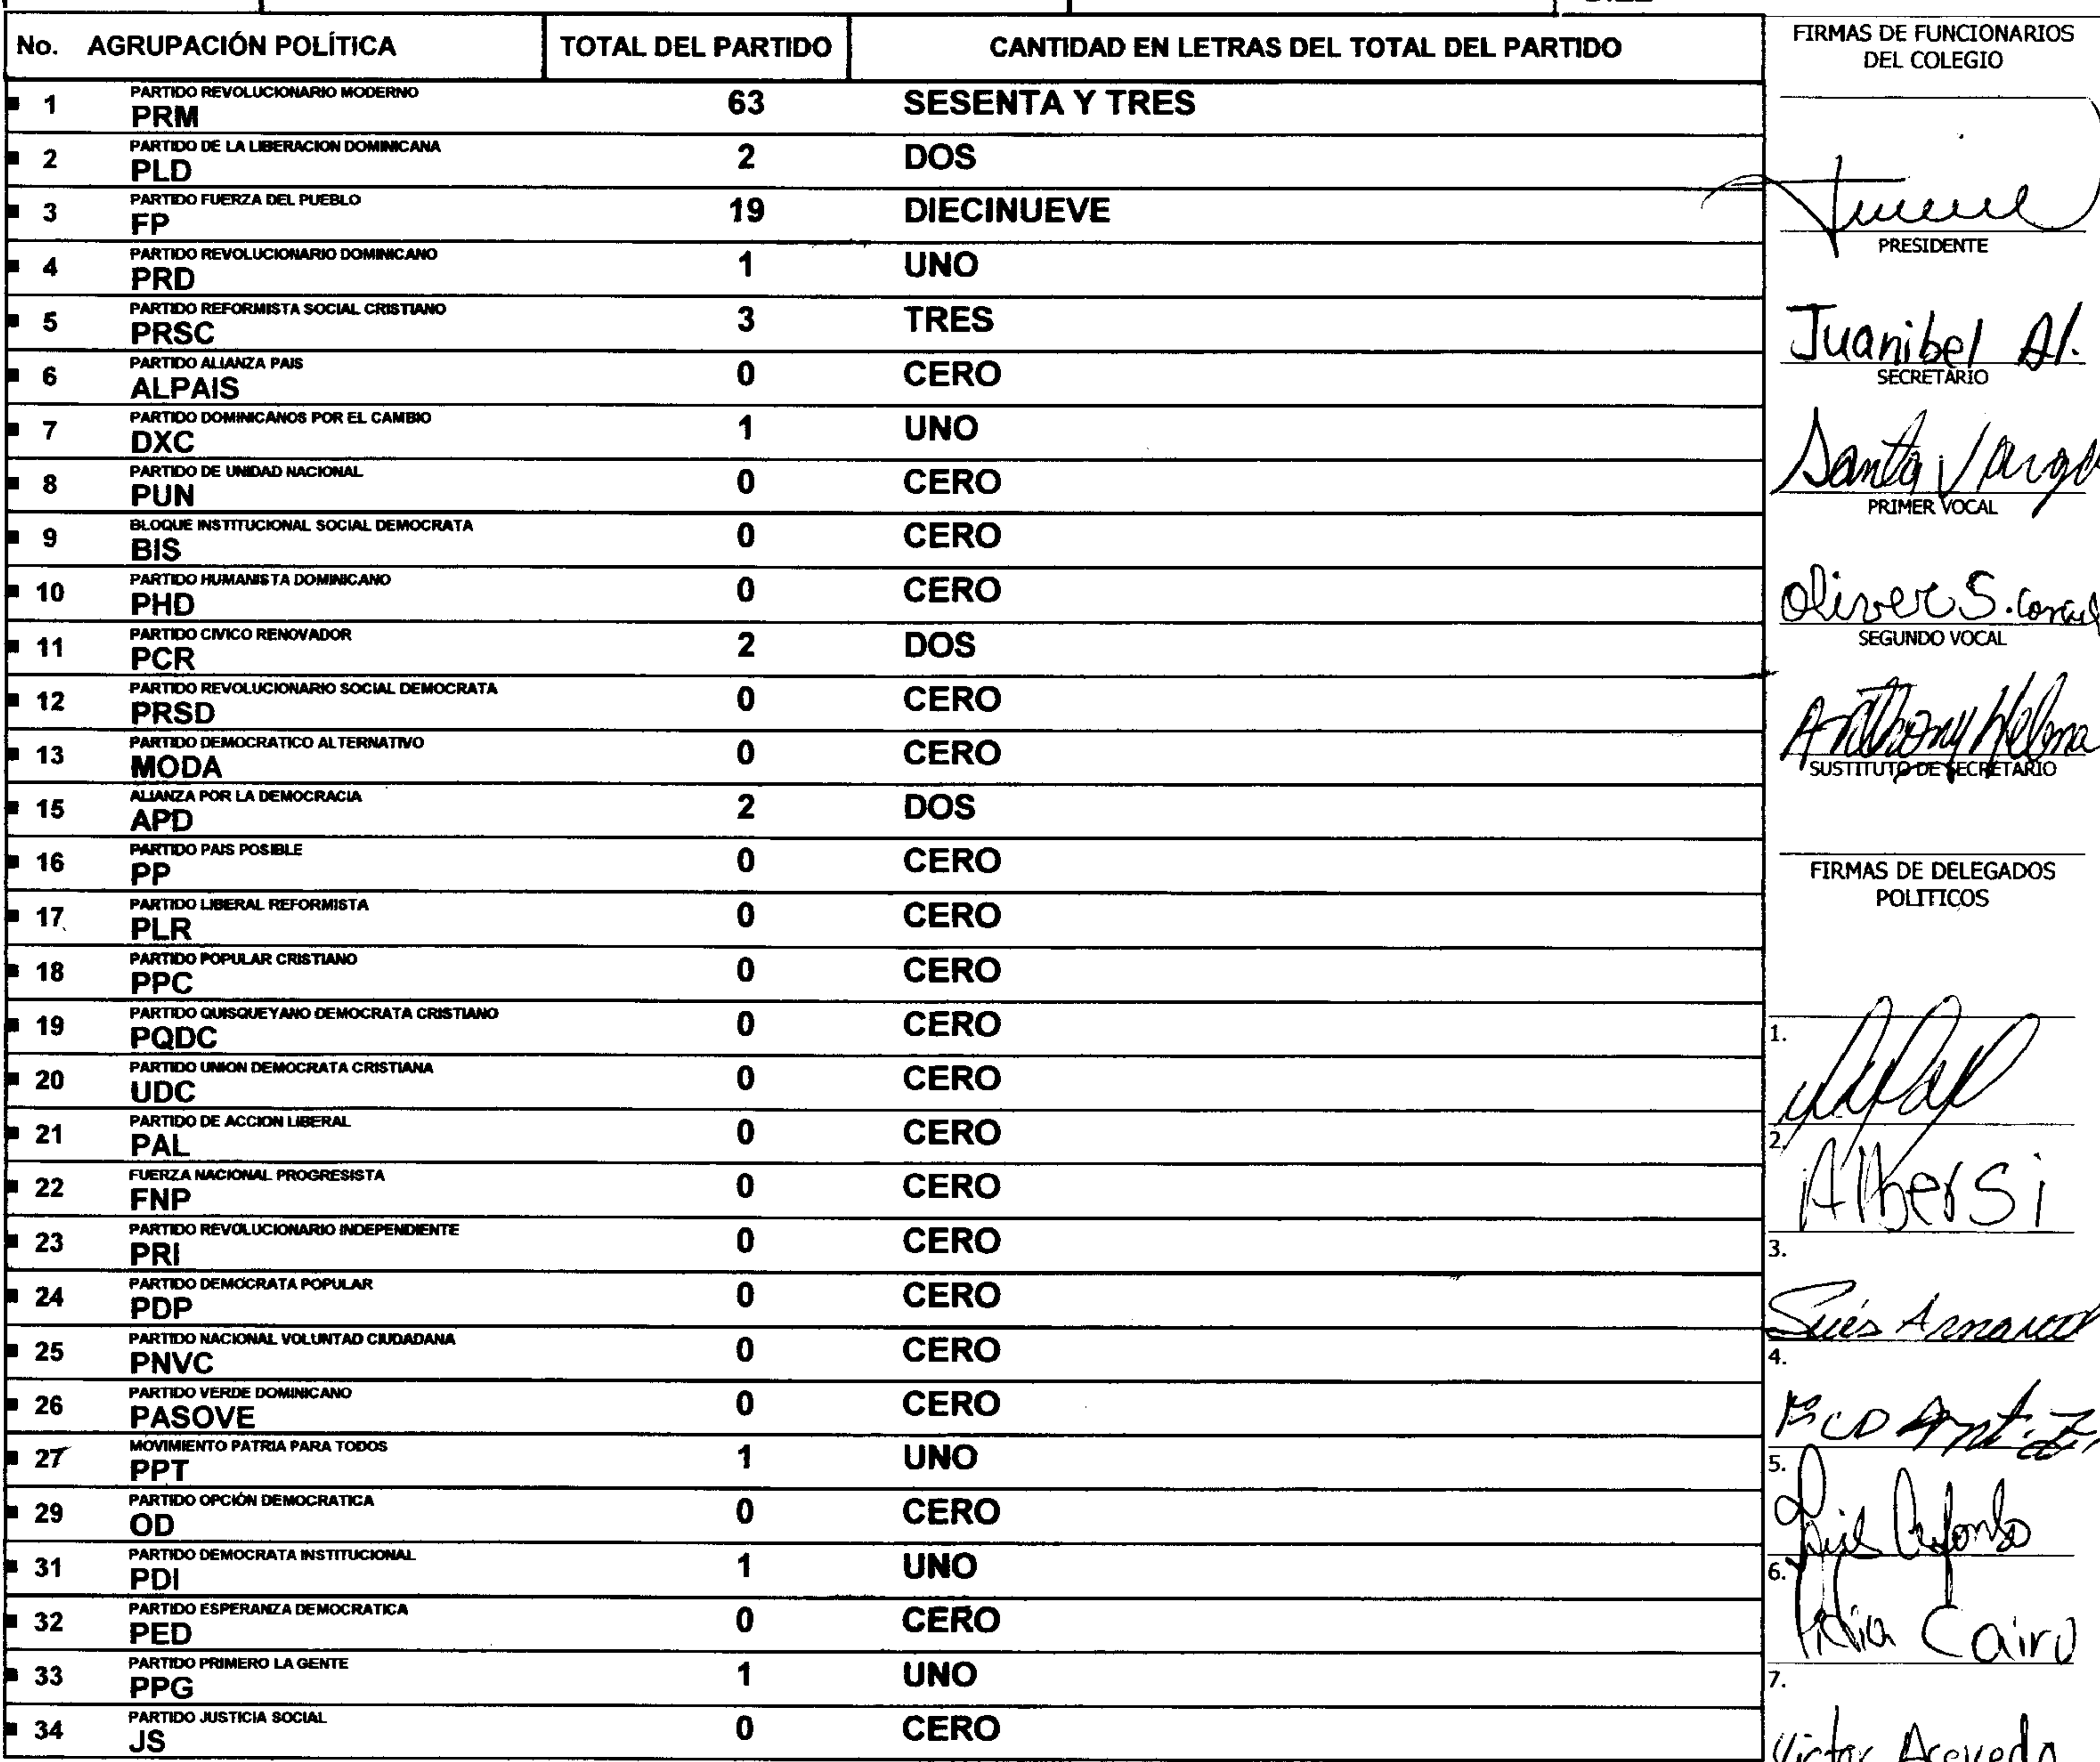 No. AGRUPACIÓN POLÍTICA TOTAL DEL PARTIDO CANTIDAD EN LETRAS DEL TOTAL DEL PARTIDO
1 PARTIDO REVOLUCIONARIO MODERNO
PRM 63 SESENTA Y TRES
2 PARTIDO DE LA LIBERACION DOMINICANA
PLD 2 DOS
3 PARTIDO FUERZA DEL PUEBLO
FP 19 DIECINUEVE
4 PARTIDO REVOLUCIONARIO DOMINICANO
PRD 1 UNO
5 PARTIDO REFORMISTA SOCIAL CRISTIANO
PRSC 3 TRES
6 PARTIDO ALIANZA PAIS
ALPAIS 0 CERO
7 PARTIDO DOMINICANOS POR EL CAMBIO
DXC 1 UNO
8 PARTIDO DE UNIDAD NACIONAL
PUN 0 CERO
9 BLOQUE INSTITUCIONAL SOCIAL DEMOCRATA
BIS 0 CERO
10 PARTIDO HUMANISTA DOMINICANO
PHD 0 CERO
11 PARTIDO CIVICO RENOVADOR
PCR 2 DOS
12 PARTIDO REVOLUCIONARIO SOCIAL DEMOCRATA
PRSD 0 CERO
13 PARTIDO DEMOCRATICO ALTERNATIVO
MODA 0 CERO
15 ALIANZA POR LA DEMOCRACIA
APD 2 DOS
16 PARTIDO PAIS POSIBLE
PP 0 CERO
17 PARTIDO LIBERAL REFORMISTA
PLR 0 CERO
18 PARTIDO POPULAR CRISTIANO
PPC 0 CERO
19 PARTIDO QUISQUEYANO DEMOCRATA CRISTIANO
PQDC 0 CERO
20 PARTIDO UNION DEMOCRATA CRISTIANA
UDC 0 CERO
21 PARTIDO DE ACCION LIBERAL
PAL 0 CERO
22 FUERZA NACIONAL PROGRESISTA
FNP 0 CERO
23 PARTIDO REVOLUCIONARIO INDEPENDIENTE
PRI 0 CERO
24 PARTIDO DEMOCRATA POPULAR
PDP 0 CERO
25 PARTIDO NACIONAL VOLUNTAD CIUDADANA
PNVC 0 CERO
26 PARTIDO VERDE DOMINICANO
PASOVE 0 CERO
27 MOVIMIENTO PATRIA PARA TODOS
PPT 1 UNO
29 PARTIDO OPCIÓN DEMOCRATICA
OD 0 CERO
31 PARTIDO DEMOCRATA INSTITUCIONAL
PDI 1 UNO
32 PARTIDO ESPERANZA DEMOCRATICA
PED 0 CERO
33 PARTIDO PRIMERO LA GENTE
PPG 1 UNO
34 PARTIDO JUSTICIA SOCIAL
JS 0 CERO
FIRMAS DE FUNCIONARIOS
DEL COLEGIO
PRESIDENTE
Juanibel Al.
SECRETARIO
Santa
PRIMER VOCAL
Oliver S.
SEGUNDO VOCAL
Anthony
SUSTITUTO DE SECRETARIO
FIRMAS DE DELEGADOS
POLITICOS
1.
2.
3.
4.
5.
6.
Cairo
7.
Victor Acevedo